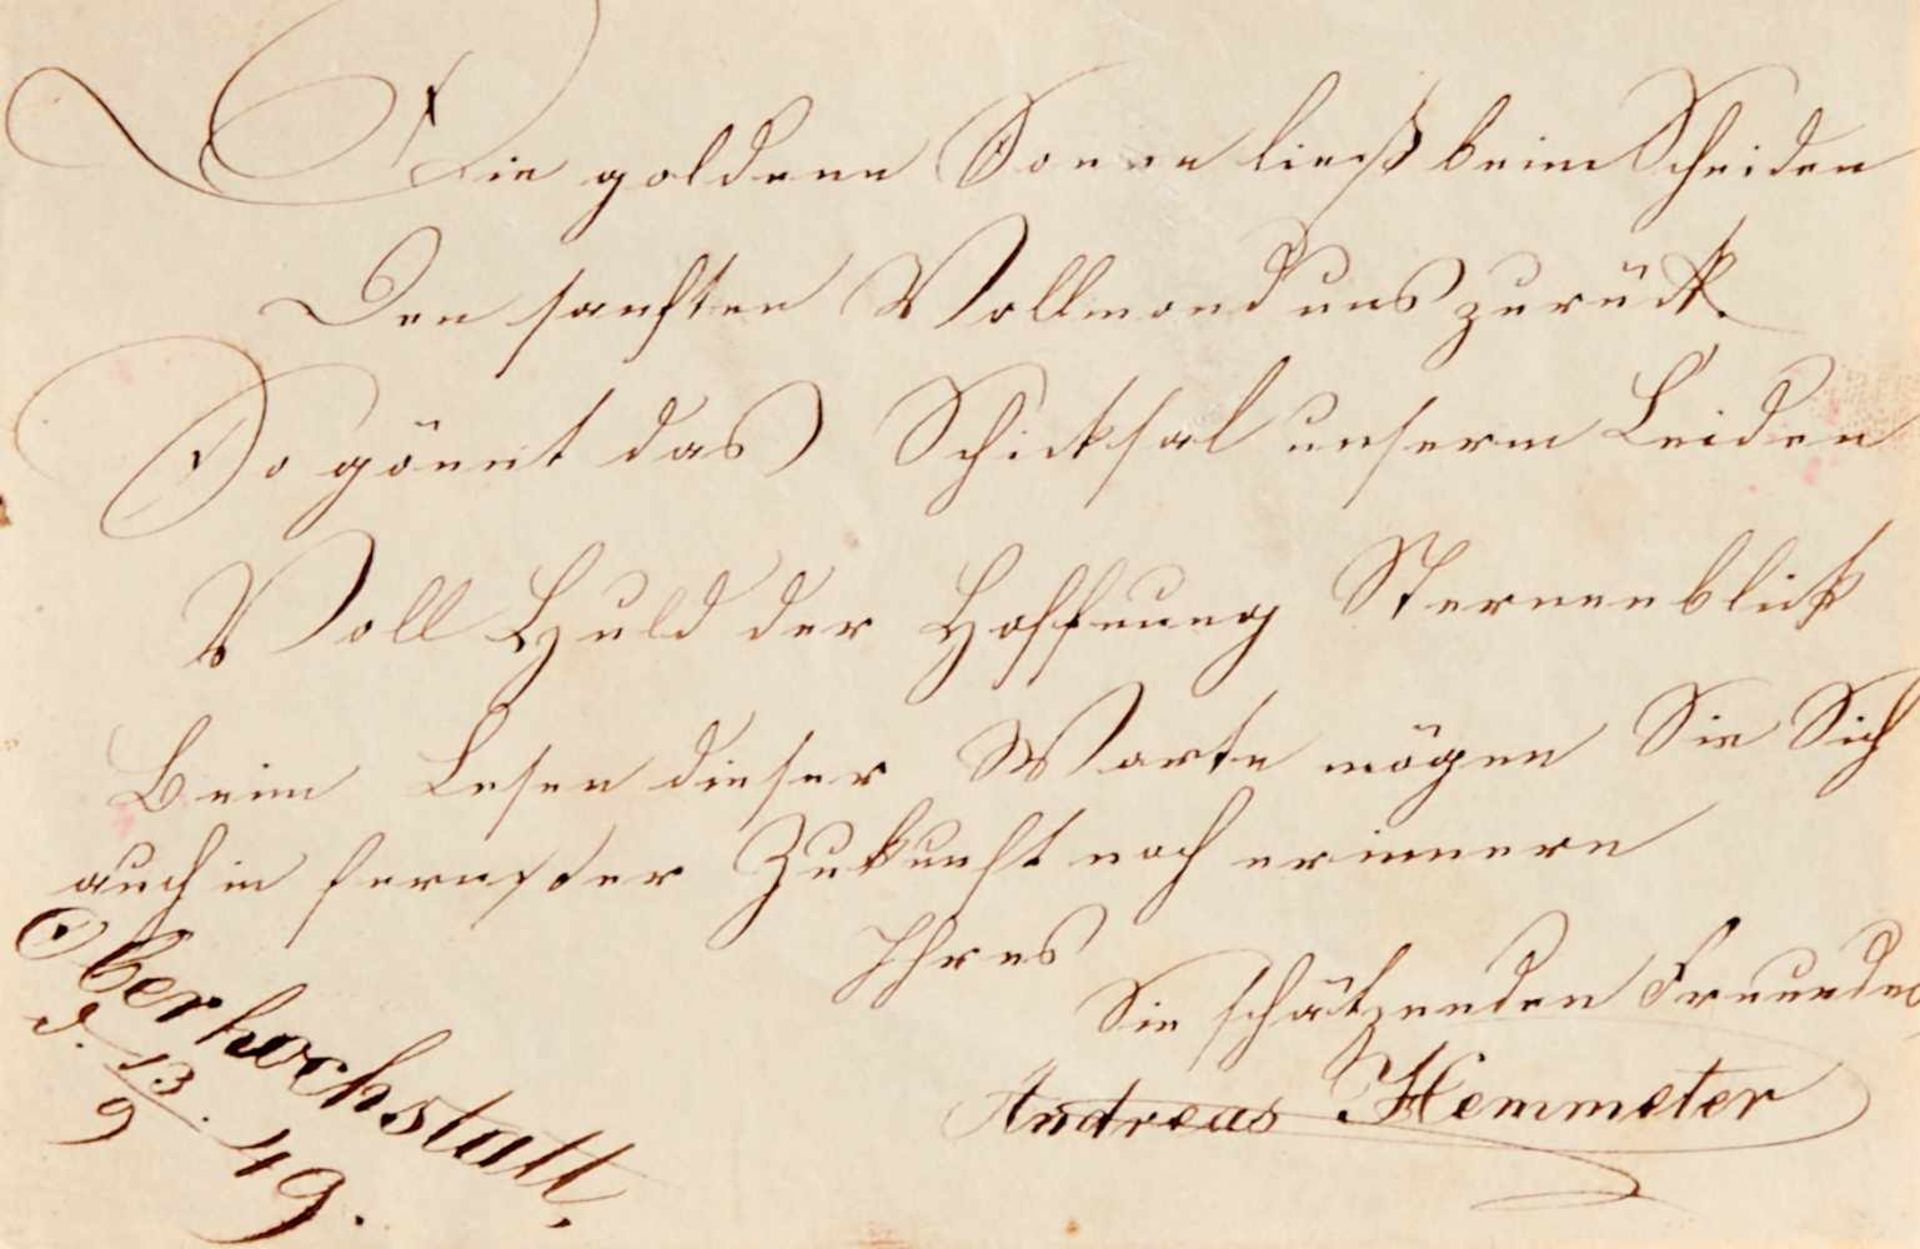 Die goldene Sonne ließ beim Scheiden
Den sanften Vollmond uns zurück.
So gönnt das Schicksal unserm Leiden
Voll Huld der Hoffnung Sternenblick
Beim Lesen dieser Worte mögen Sie Sich
auch in fernster Zukunft noch erinnern
Ihres
Sie schätzenden Freundes
Andreas Hemmeter
Oberhochstatt,
d. 13/9. 49.